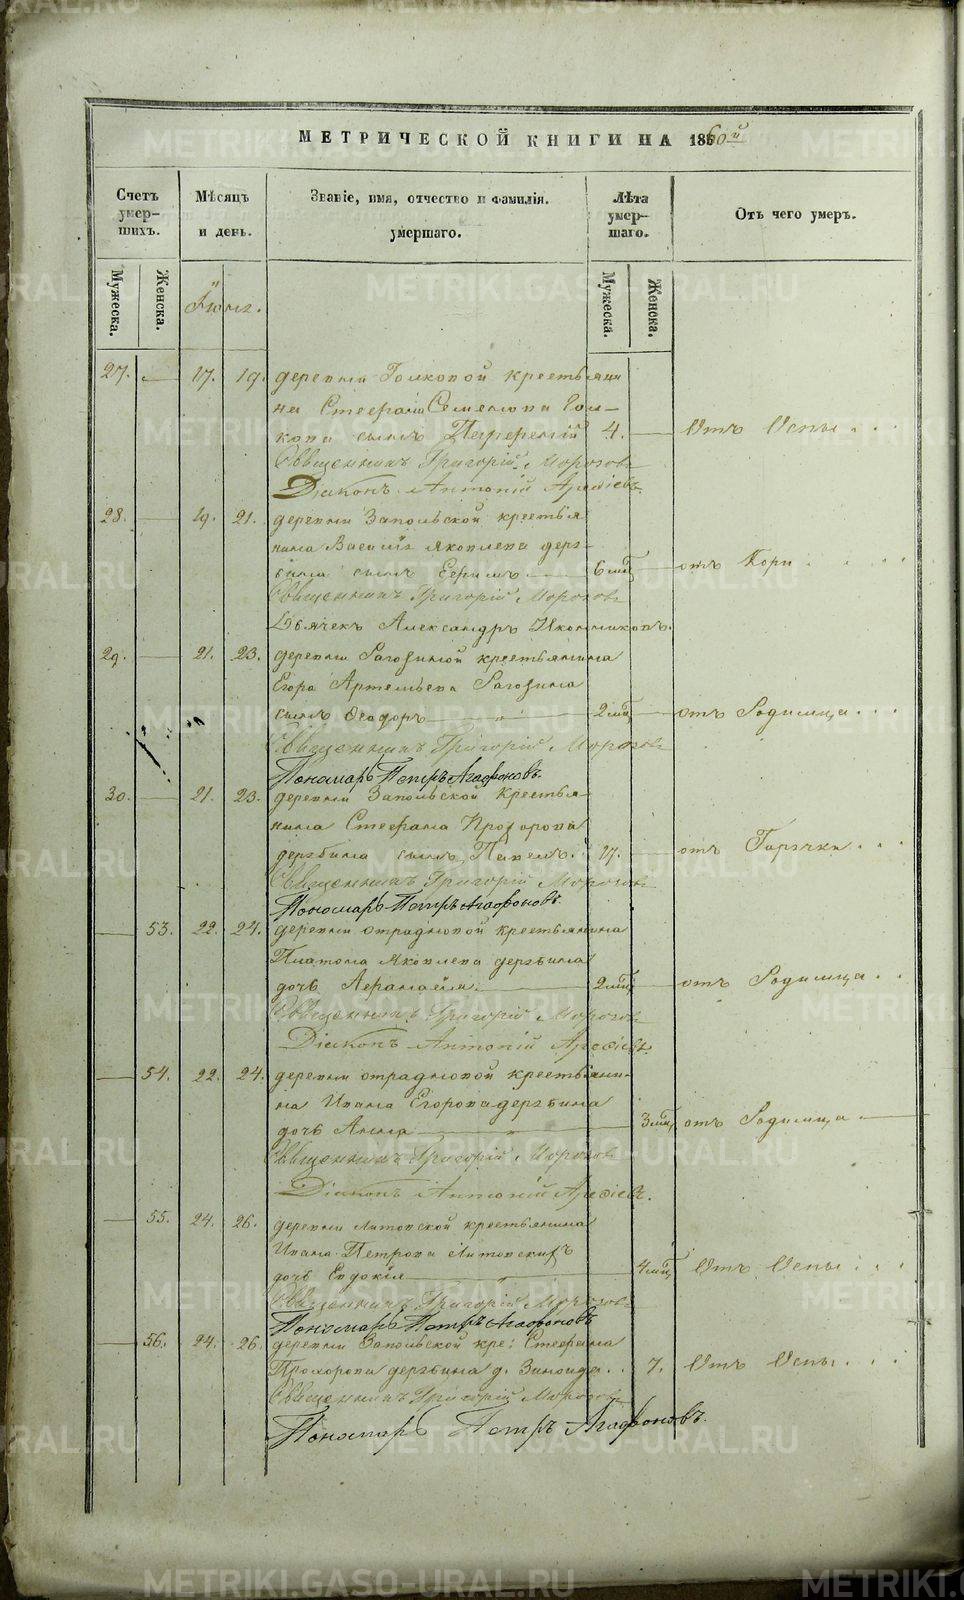 МЕТРИЧЕСКОЙ КНИГИ НА 1860й
Счетъ умерших. Мѣсяцъ и день. Званіе, имя, отчество и фамилія. умершаго. Лѣта умершаго. Отъ чего умеръ.
Мужеска. Женска. Мужеска. Женска.
Іюнь.
27. 17. 19. деревни Голковой крестьяни
на Стефана Семенова Гол-
кова сынъ 4. Отъ Оспы
Священникъ Григорій Морозовъ
Діаконъ Антоній
28. 19. 21. деревни Запольской крестья
нина Василія Яковлева деря-
бина сынъ Ефимъ 6 мѣц. отъ Кори
Священникъ Григорій Морозовъ
Дьячекъ Александръ Иконниковъ.
29. 21. 23. деревни Рагозиной крестьянина
Егора Артемьева Рагозина
сынъ Ѳеодоръ 2 мѣц. отъ Родимца
Священникъ Григорій Морозовъ
Пономарь Петръ Агафоновъ
30. 21. 23. деревни Запольской Крестья-
нина Стефана Прохорова
дерябина сынъ Павелъ. 17. отъ Горячки
Священникъ Григорій Морозовъ
Пономарь Петръ Агафоновъ
53. 22. 24. деревни отрадновой крестьянина
Платона Яковлева дерябина
дочь 2 мѣц. отъ Родимца
Священникъ Григорій Морозовъ
Діаконъ Антоній
54. 22. 24. деревни отрадновой крестьяни-
на Ивана Егорова дерябина
дочь Анна 3 мѣц. отъ Родимца
Священникъ Григорій Морозовъ
Діаконъ Антоній
55. 24. 26. деревни Литовской крестьянина
Ивана Петрова Литовскихъ
дочь Евдокія 4 мѣц. Отъ Оспы
Священникъ Григорій Морозовъ
Пономарь Петръ Агафоновъ
56. 24. 26. деревни Запольской кре: Стефана
Прохорова дерябина д. Зиноида 7. Отъ Оспы
Священникъ Григорій Морозовъ
Пономарь Петръ Агафоновъ.
METRIKI.GASO-URAL.RU